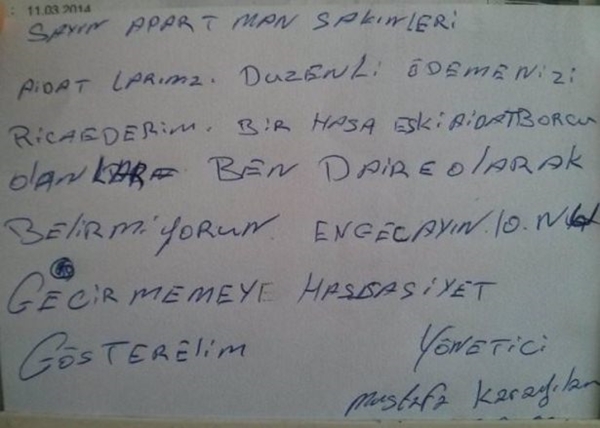 11.03.2014
SAYIN APARTMAN SAKINLERİ
AİDAT LARIMIZI. DUZENLİ ÖDEMENİZİ
RİCAEDERİM. BİR HASA ESKİ AİDATBORCU
OLANLAR BEN DAİRE OLARAK
BELİRMİYORUN ENGEÇAYIN.10.N
GEÇİRMEMEYE HASSASİYET
GÖSTERELİM YÖNETİCİ
Mustafa Karayılan